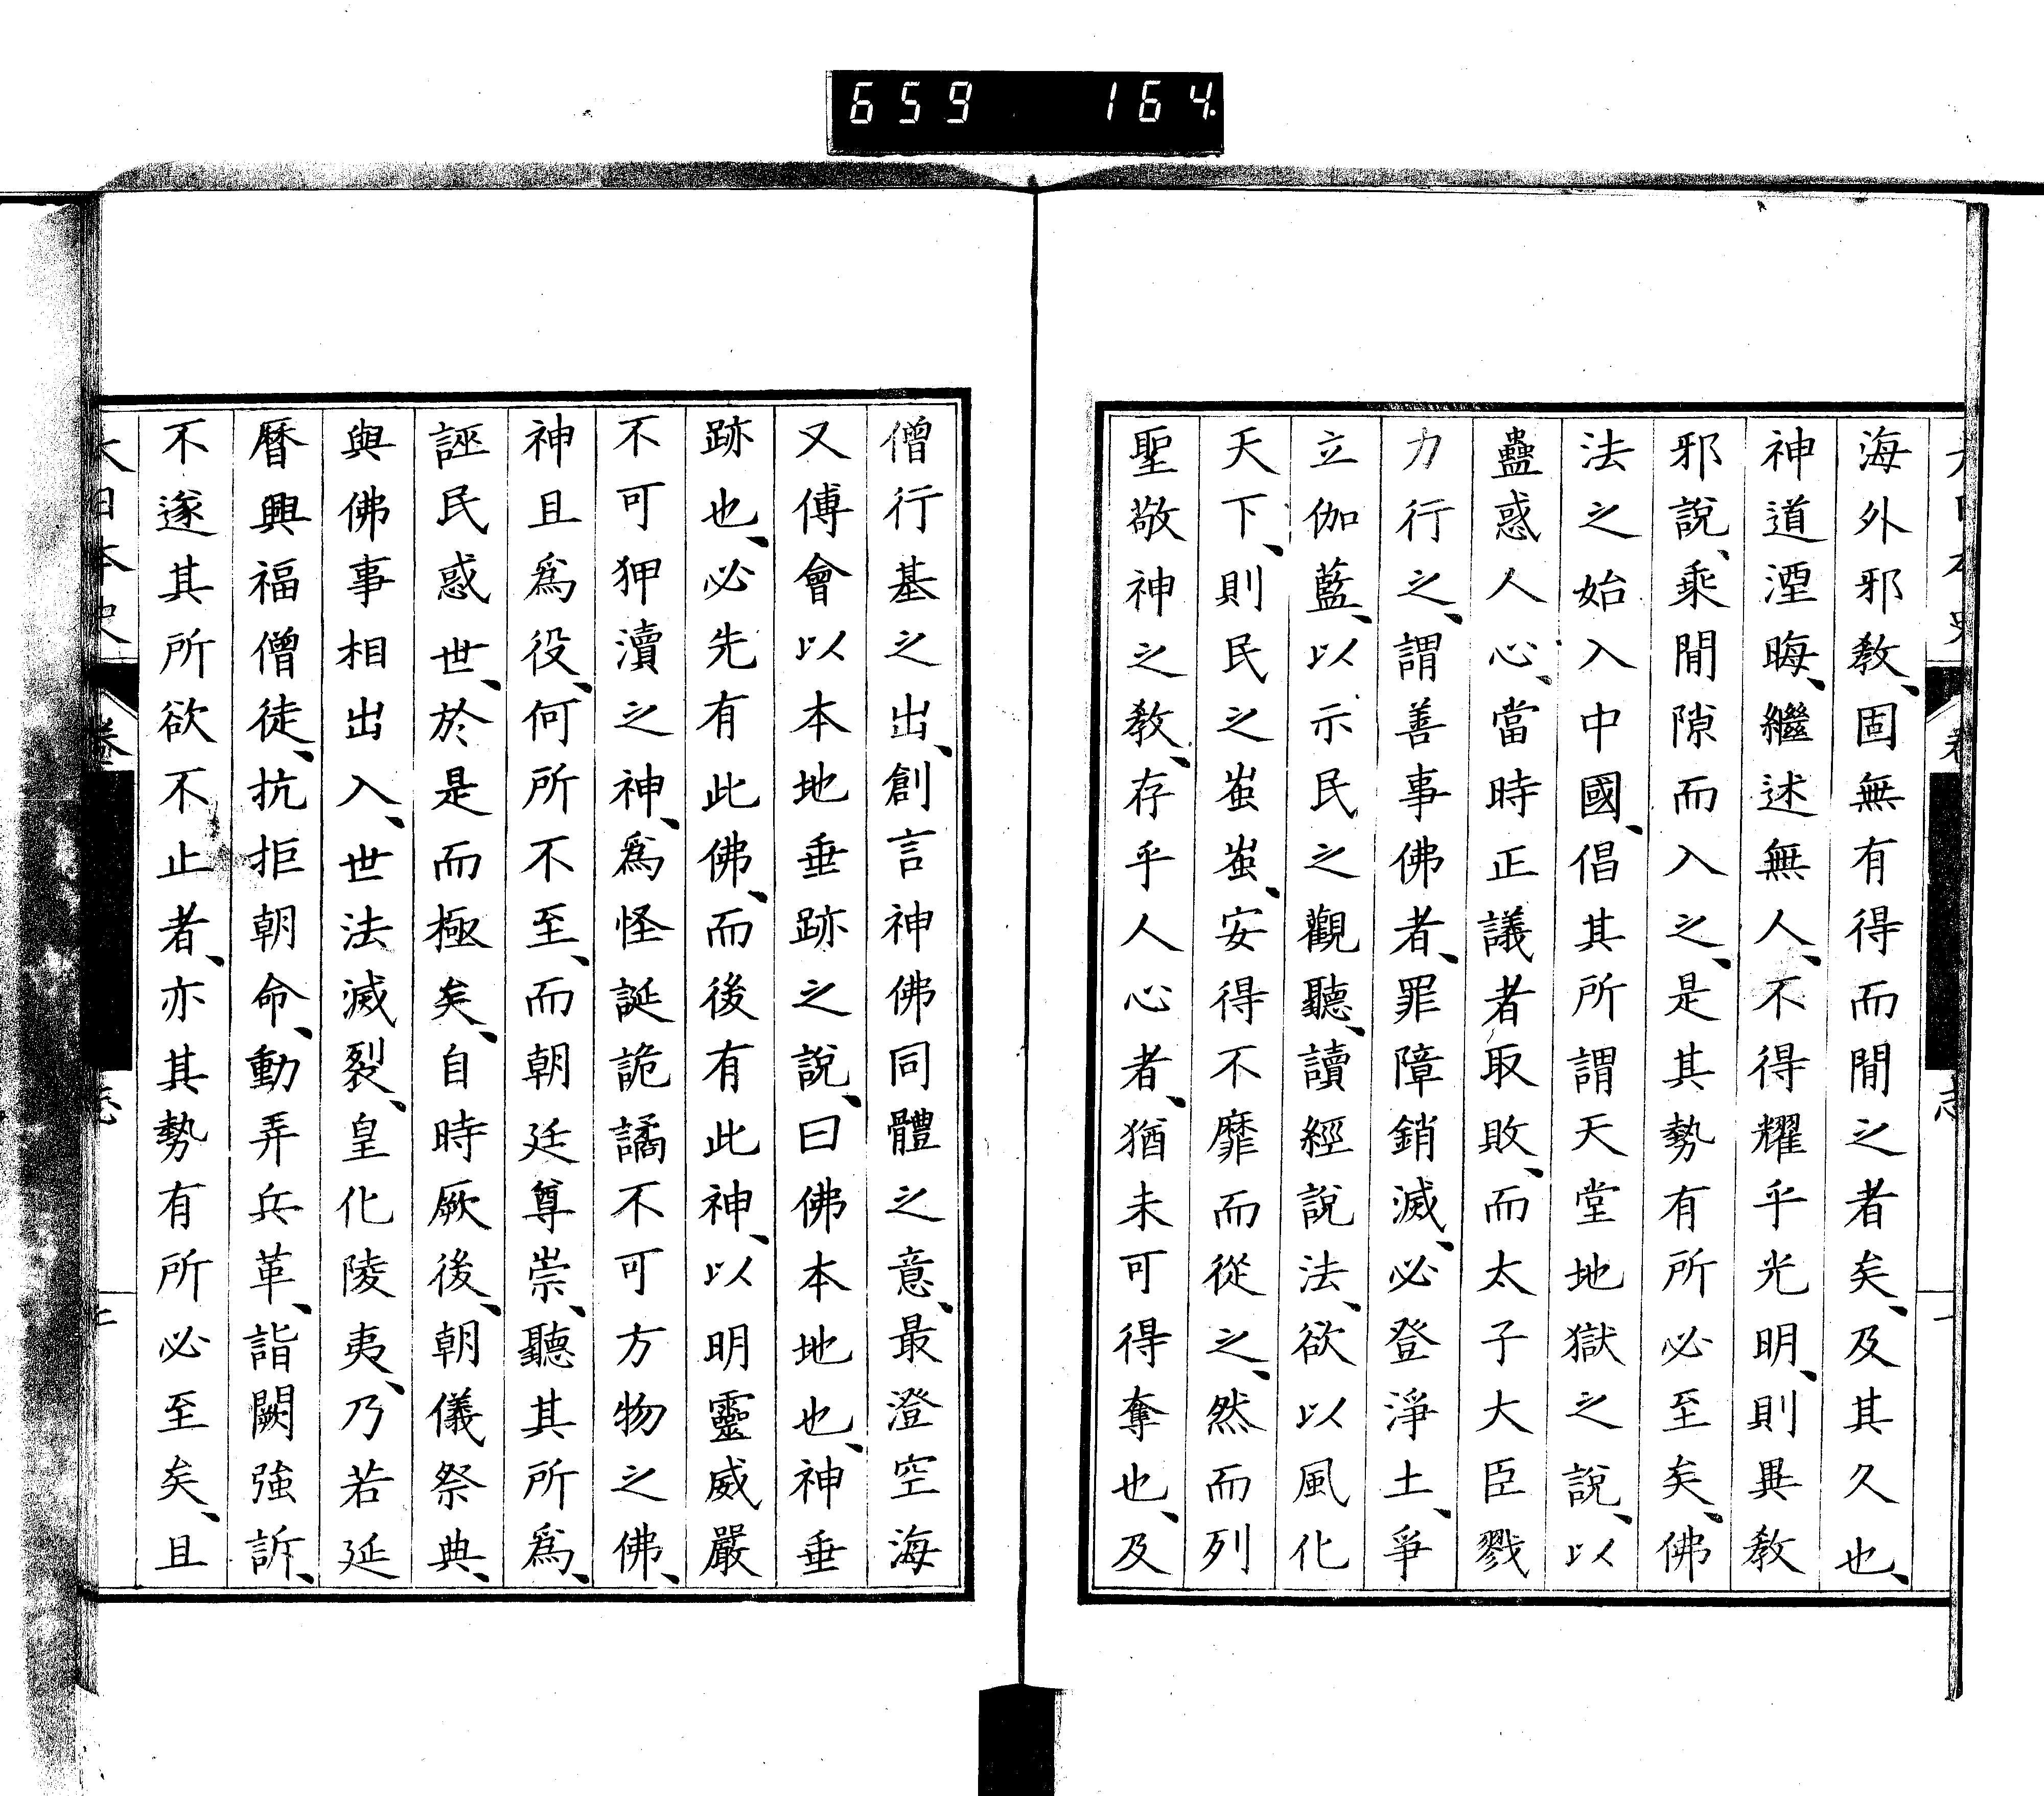 659 164
海外邪教、固無有得而閒之者矣、及其久也、
神道湮晦、繼述無人、不得耀乎光明、則異教
邪說、乘閒隙而入之、是其勢有所必至矣、佛
法之始入中國、倡其所謂天堂地獄之說、以
蠱惑人心、當時正議者取敗、而太子大臣戮
力行之、謂善事佛者、罪障銷滅、必登淨土、爭
立伽藍、以示民之觀聽、讀經說法、欲以風化
天下、則民之蚩蚩、安得不靡而從之、然而列
聖敬神之教、存乎人心者、猶未可得奪也、及
僧行基之出、創言神佛同體之意、最澄空海
又傅會以本地垂跡之說、曰佛本地也、神垂
跡也、必先有此佛、而後有此神、以明靈威嚴
不可狎瀆之神、爲怪誕詭譎不可方物之佛、
神且爲役、何所不至、而朝廷尊崇、聽其所爲、
誣民惑世、於是而極矣、自時厥後、朝儀祭典、
與佛事相出入、世法滅裂、皇化陵夷、乃若延
曆興福僧徒、抗拒朝命、動弄兵革、詣闕強訴、
不遂其所欲不止者、亦其勢有所必至矣、且
大日本史 卷 志